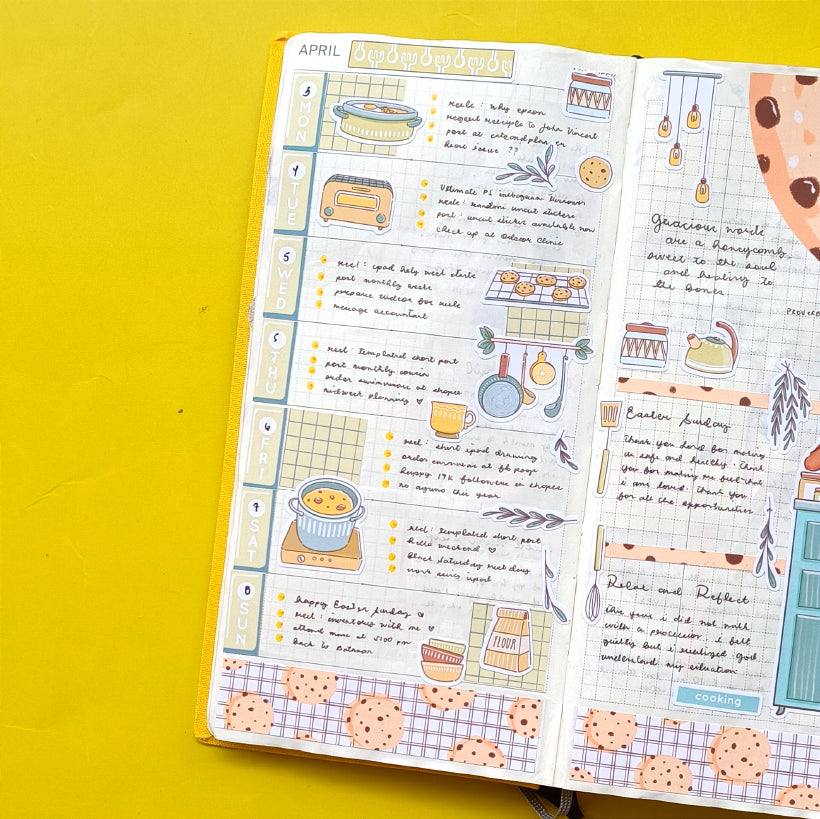 APRIL
3 MON
reels: why epson
request receipts to John Vincent
post at
reel issue ??
4 TUE
Ultimate P1 instagram
reels: random uncut stickers
post: uncut sticker available now
check up at Clinic
5 WED
reel: ipad holy week
post monthly
prepare videos for reels
message accountant
THU
reel: templated short post
post monthly
order swimwear at shopee
midweek planning ♡
6 FRI
reel: short ipad drawing
order at
happy 19k followers in shopee
no this year
7 SAT
reel: templated short post
hello weekend ♡
Black Saturday
8 SUN
happy Easter Sunday
reel: inventory with me
attend mass at 5:00 pm
back to
FLOUR
Gracious words
are a honeycomb
sweet to the soul
and healing to
the bones.
PROVERB
Easter Sunday
Thank you Lord for making
us safe and healthy. thank
you for making me feel that
i am loved. Thank you
for all the opportunities
Relax and Reflect
this year i did not
with a procession. i felt
guilty but i realized god
understand my situation
cooking